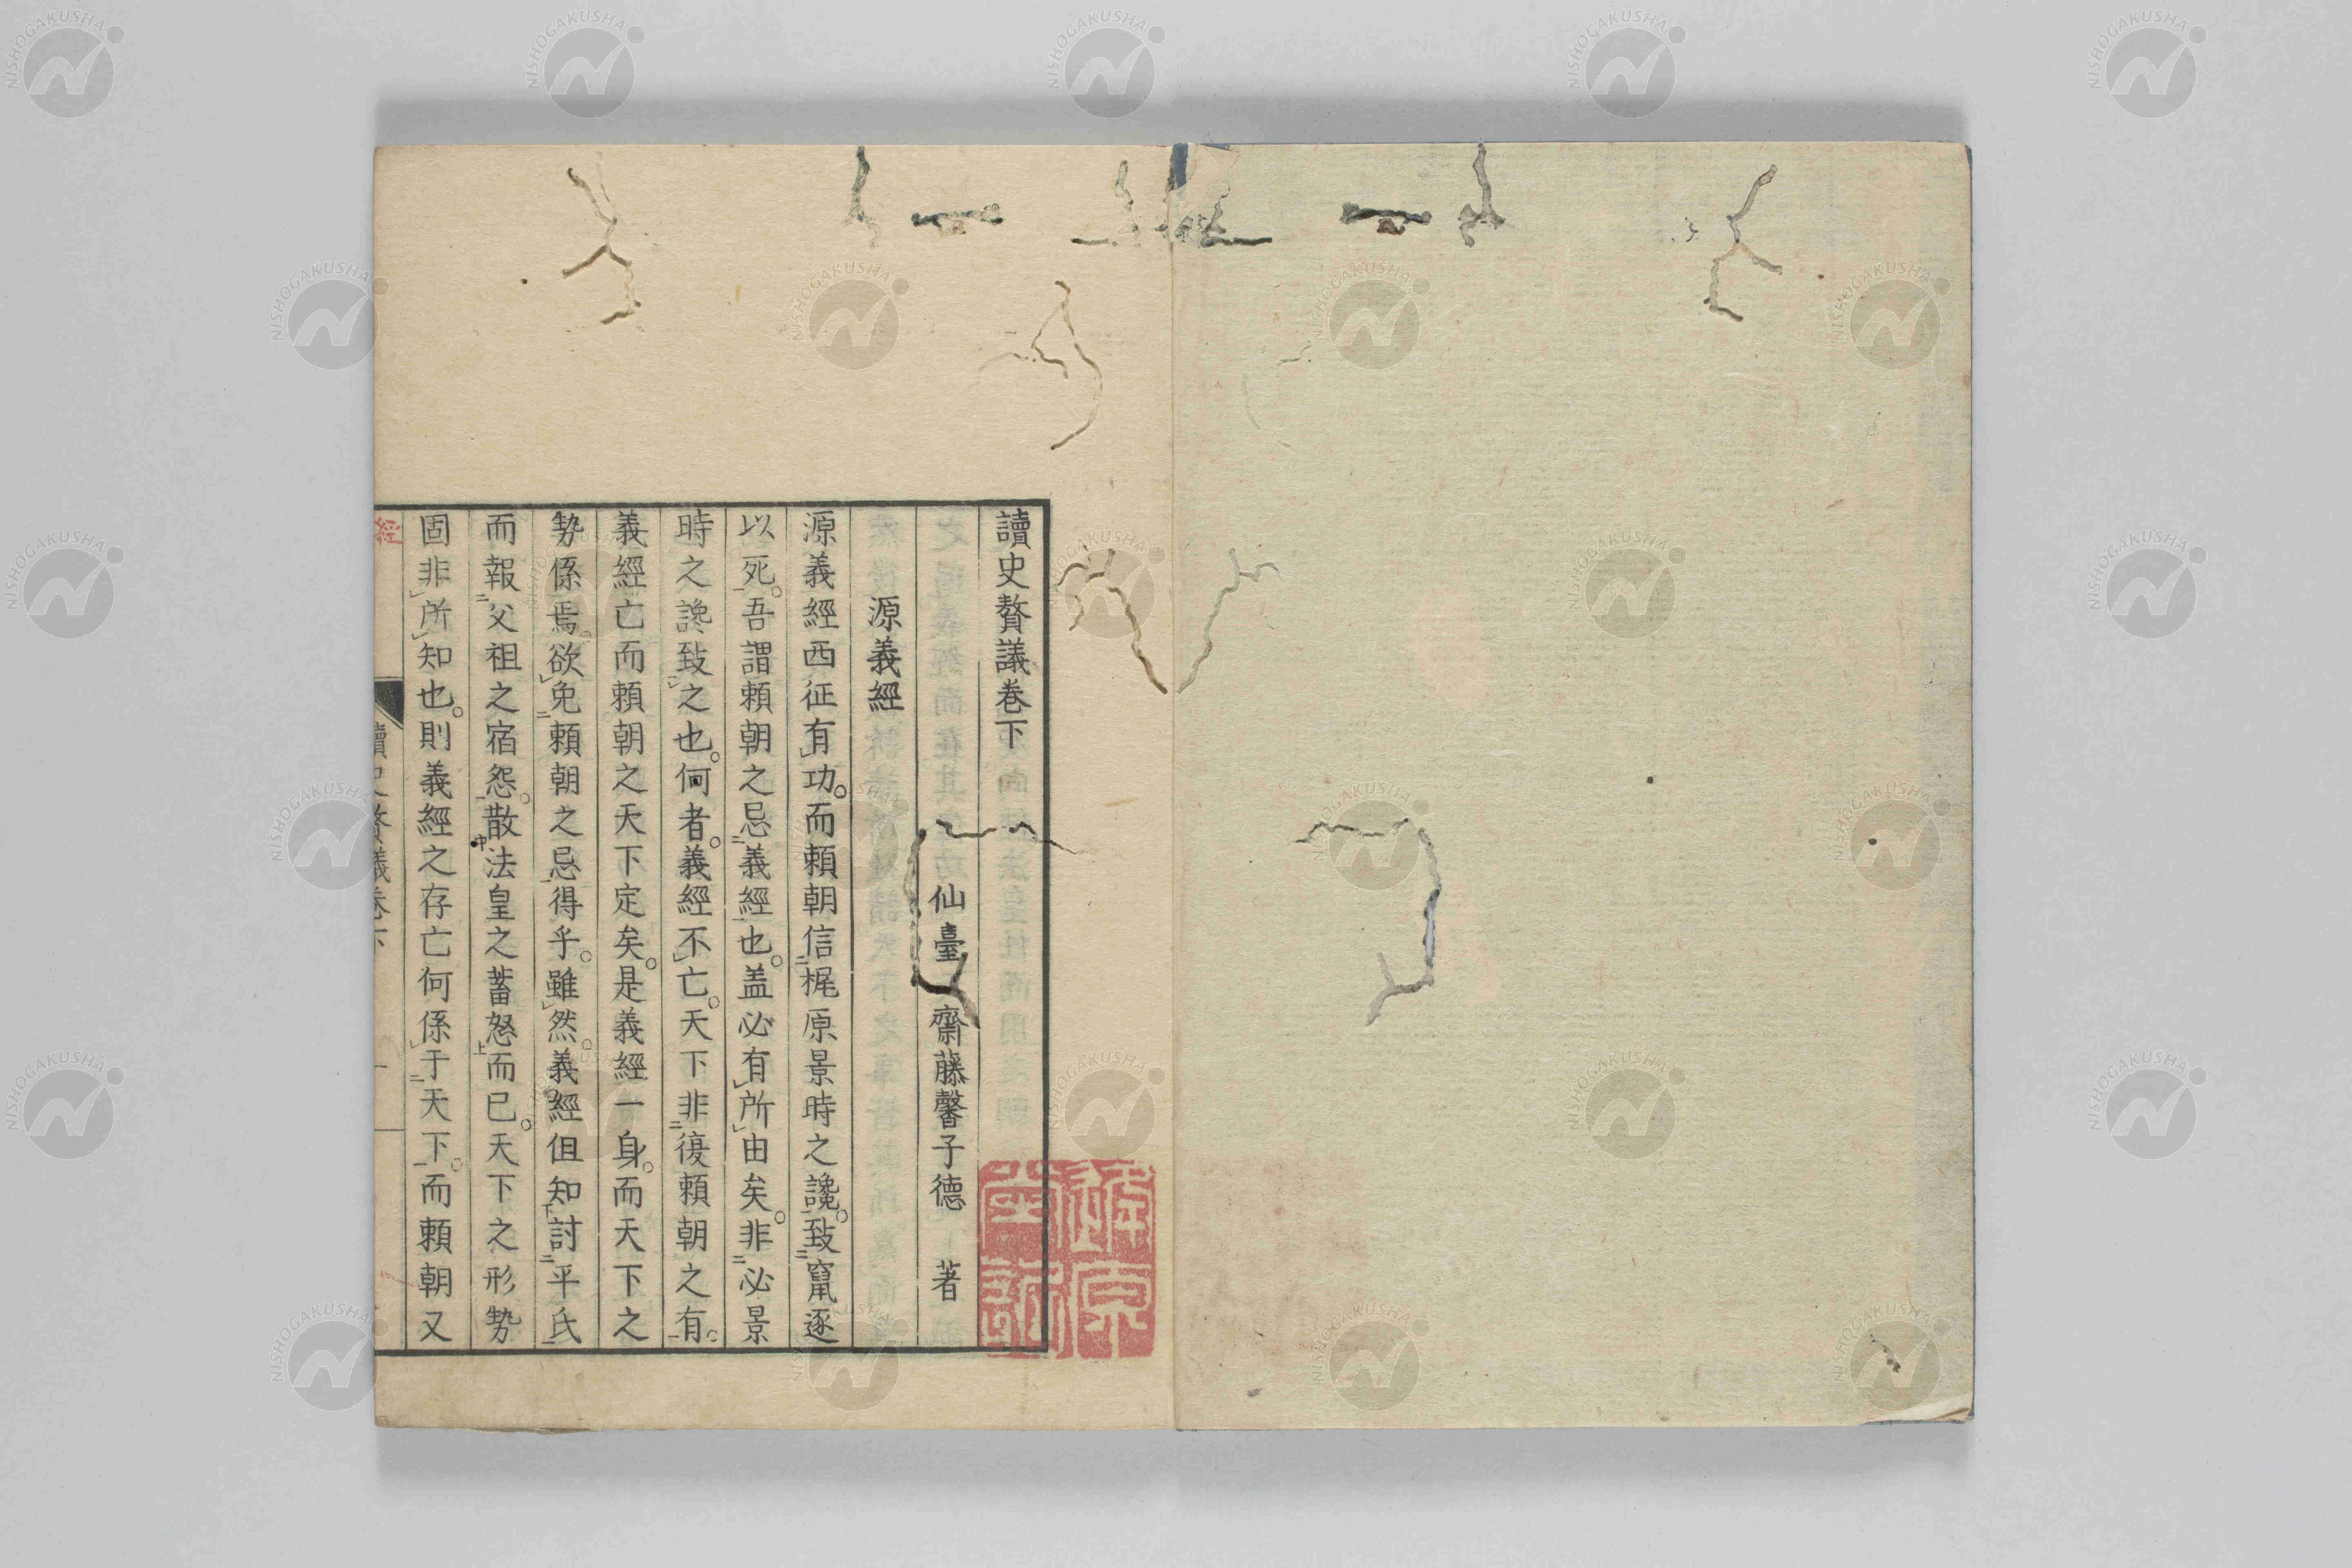 讀史贅議卷下
仙臺 齋藤馨子德 著
源義經
源義經西征有功。而賴朝信梶原景時之讒。致竄逐
以死。吾謂賴朝之忌義經也。盖必有所由矣。非必景
時之讒致之也。何者。義經不亡。天下非復賴朝之有。
義經亡而賴朝之天下定矣。是義經一身。而天下之
勢係焉。欲免賴朝之忌得乎。雖然。義經但知討平氏
而報父祖之宿怨。散法皇之蓄怒而已。天下之形勢
固非所知也。則義經之存亡何係于天下。而賴朝又
經
讀史贅議卷下
一
NISHOGAKUSHA